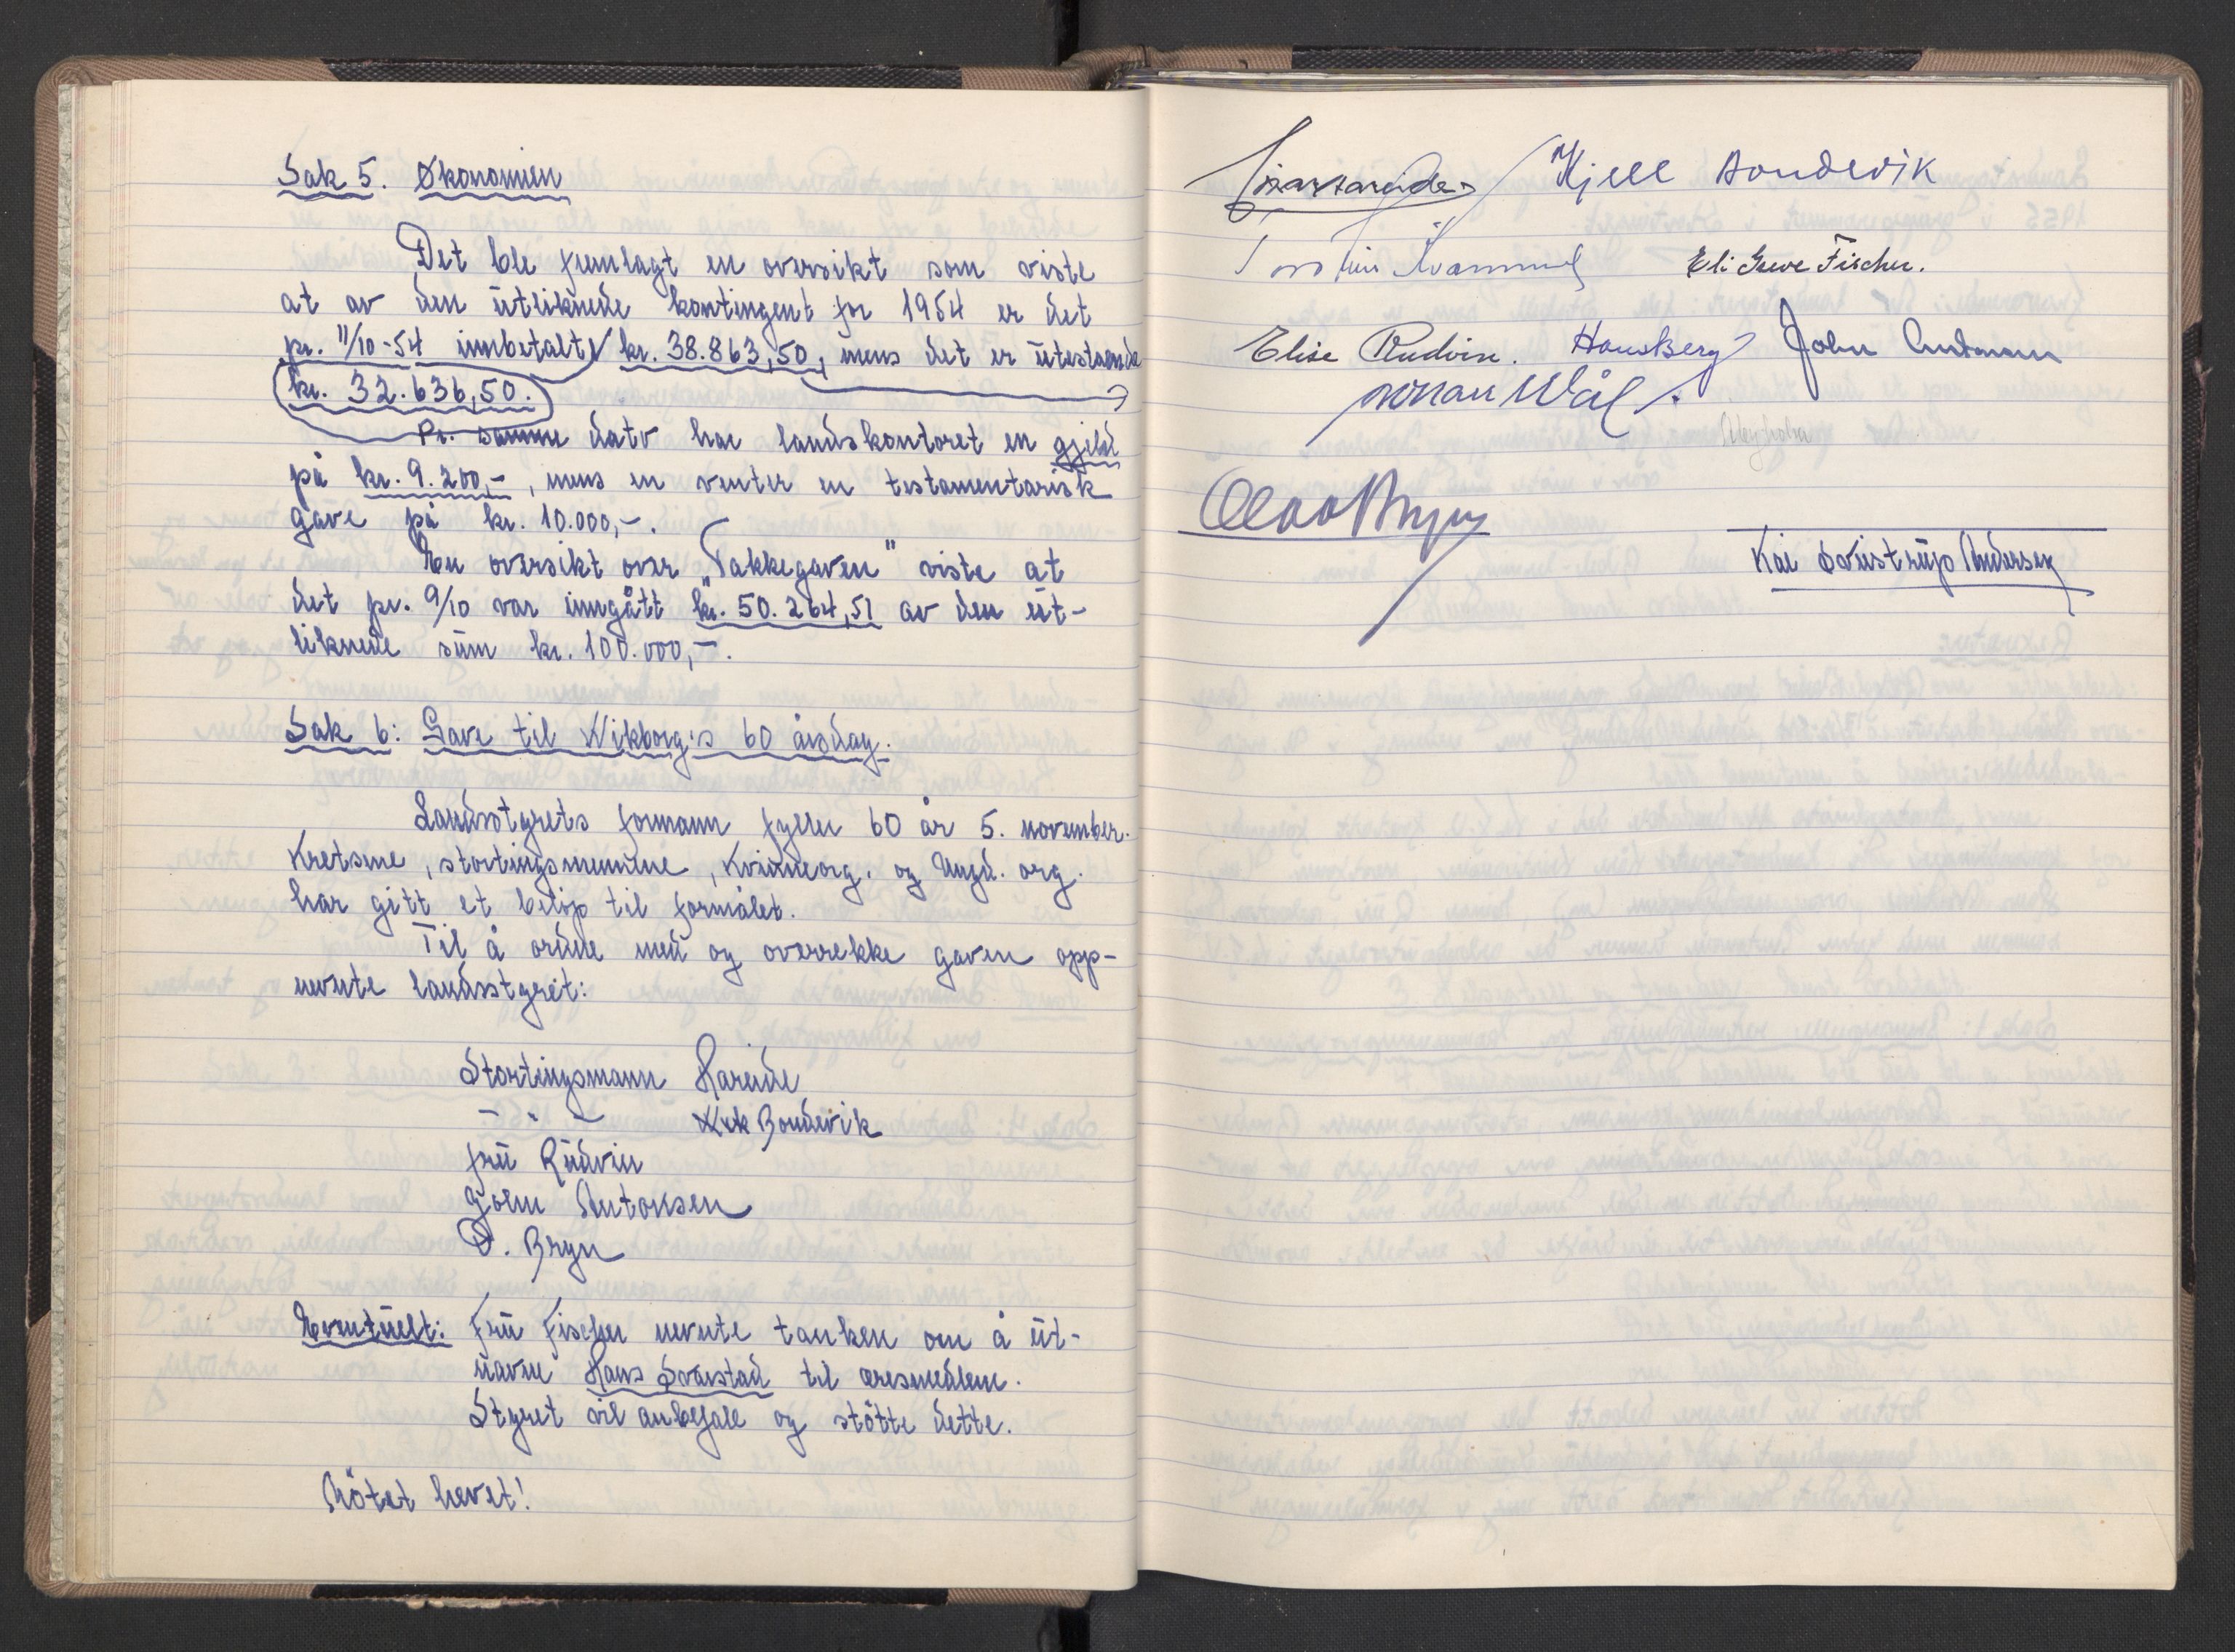 Sak 5. Økonomien
Det ble fremlagt en oversikt som viste
at av den utliknede kontingent for 1954 er det
pr. 11/10-54 innbetalt kr. 38.863,50, mens det er utestaende
kr. 32.636,50.
Pr. samme dato har landskontoret en gjeld
på kr. 9.200,-, mens en venter en testamentarisk
gave på kr. 10.000,-.
En oversikt over „Takkegaven" viste at
det pr. 9/10 var inngått kr. 50.264,51 av den ut-
liknede sum kr. 100.000,-.
Sak 6: Gave til Wikborg's 60 årsdag.
Landsstyrets formann fyller 60 år 5. november.
Kretsene, stortingsmennene, Kvinneorg. og Ungd. org.
har gitt et beløp til formålet.
Til å ordne med og overrekke gaven opp-
nevnte landsstyret:
Stortingsmann Hareide
- " - Kjell Bondevik
fru Rudvin
John Antonsen
O. Bryn
Eventuelt: Fru Fischer nevnte tanken om å ut-
navne Hans Svarstad til æresmedlem.
Styret vil anbefale og støtte dette.
Møtet hevet!
Kjell Bondevik
Kvammen
Eli Greve Fischer.
Elise Rudvin. Hans Berg John Antonsen
Wål.
Olav Bryn
Kai Svistrup Andersen